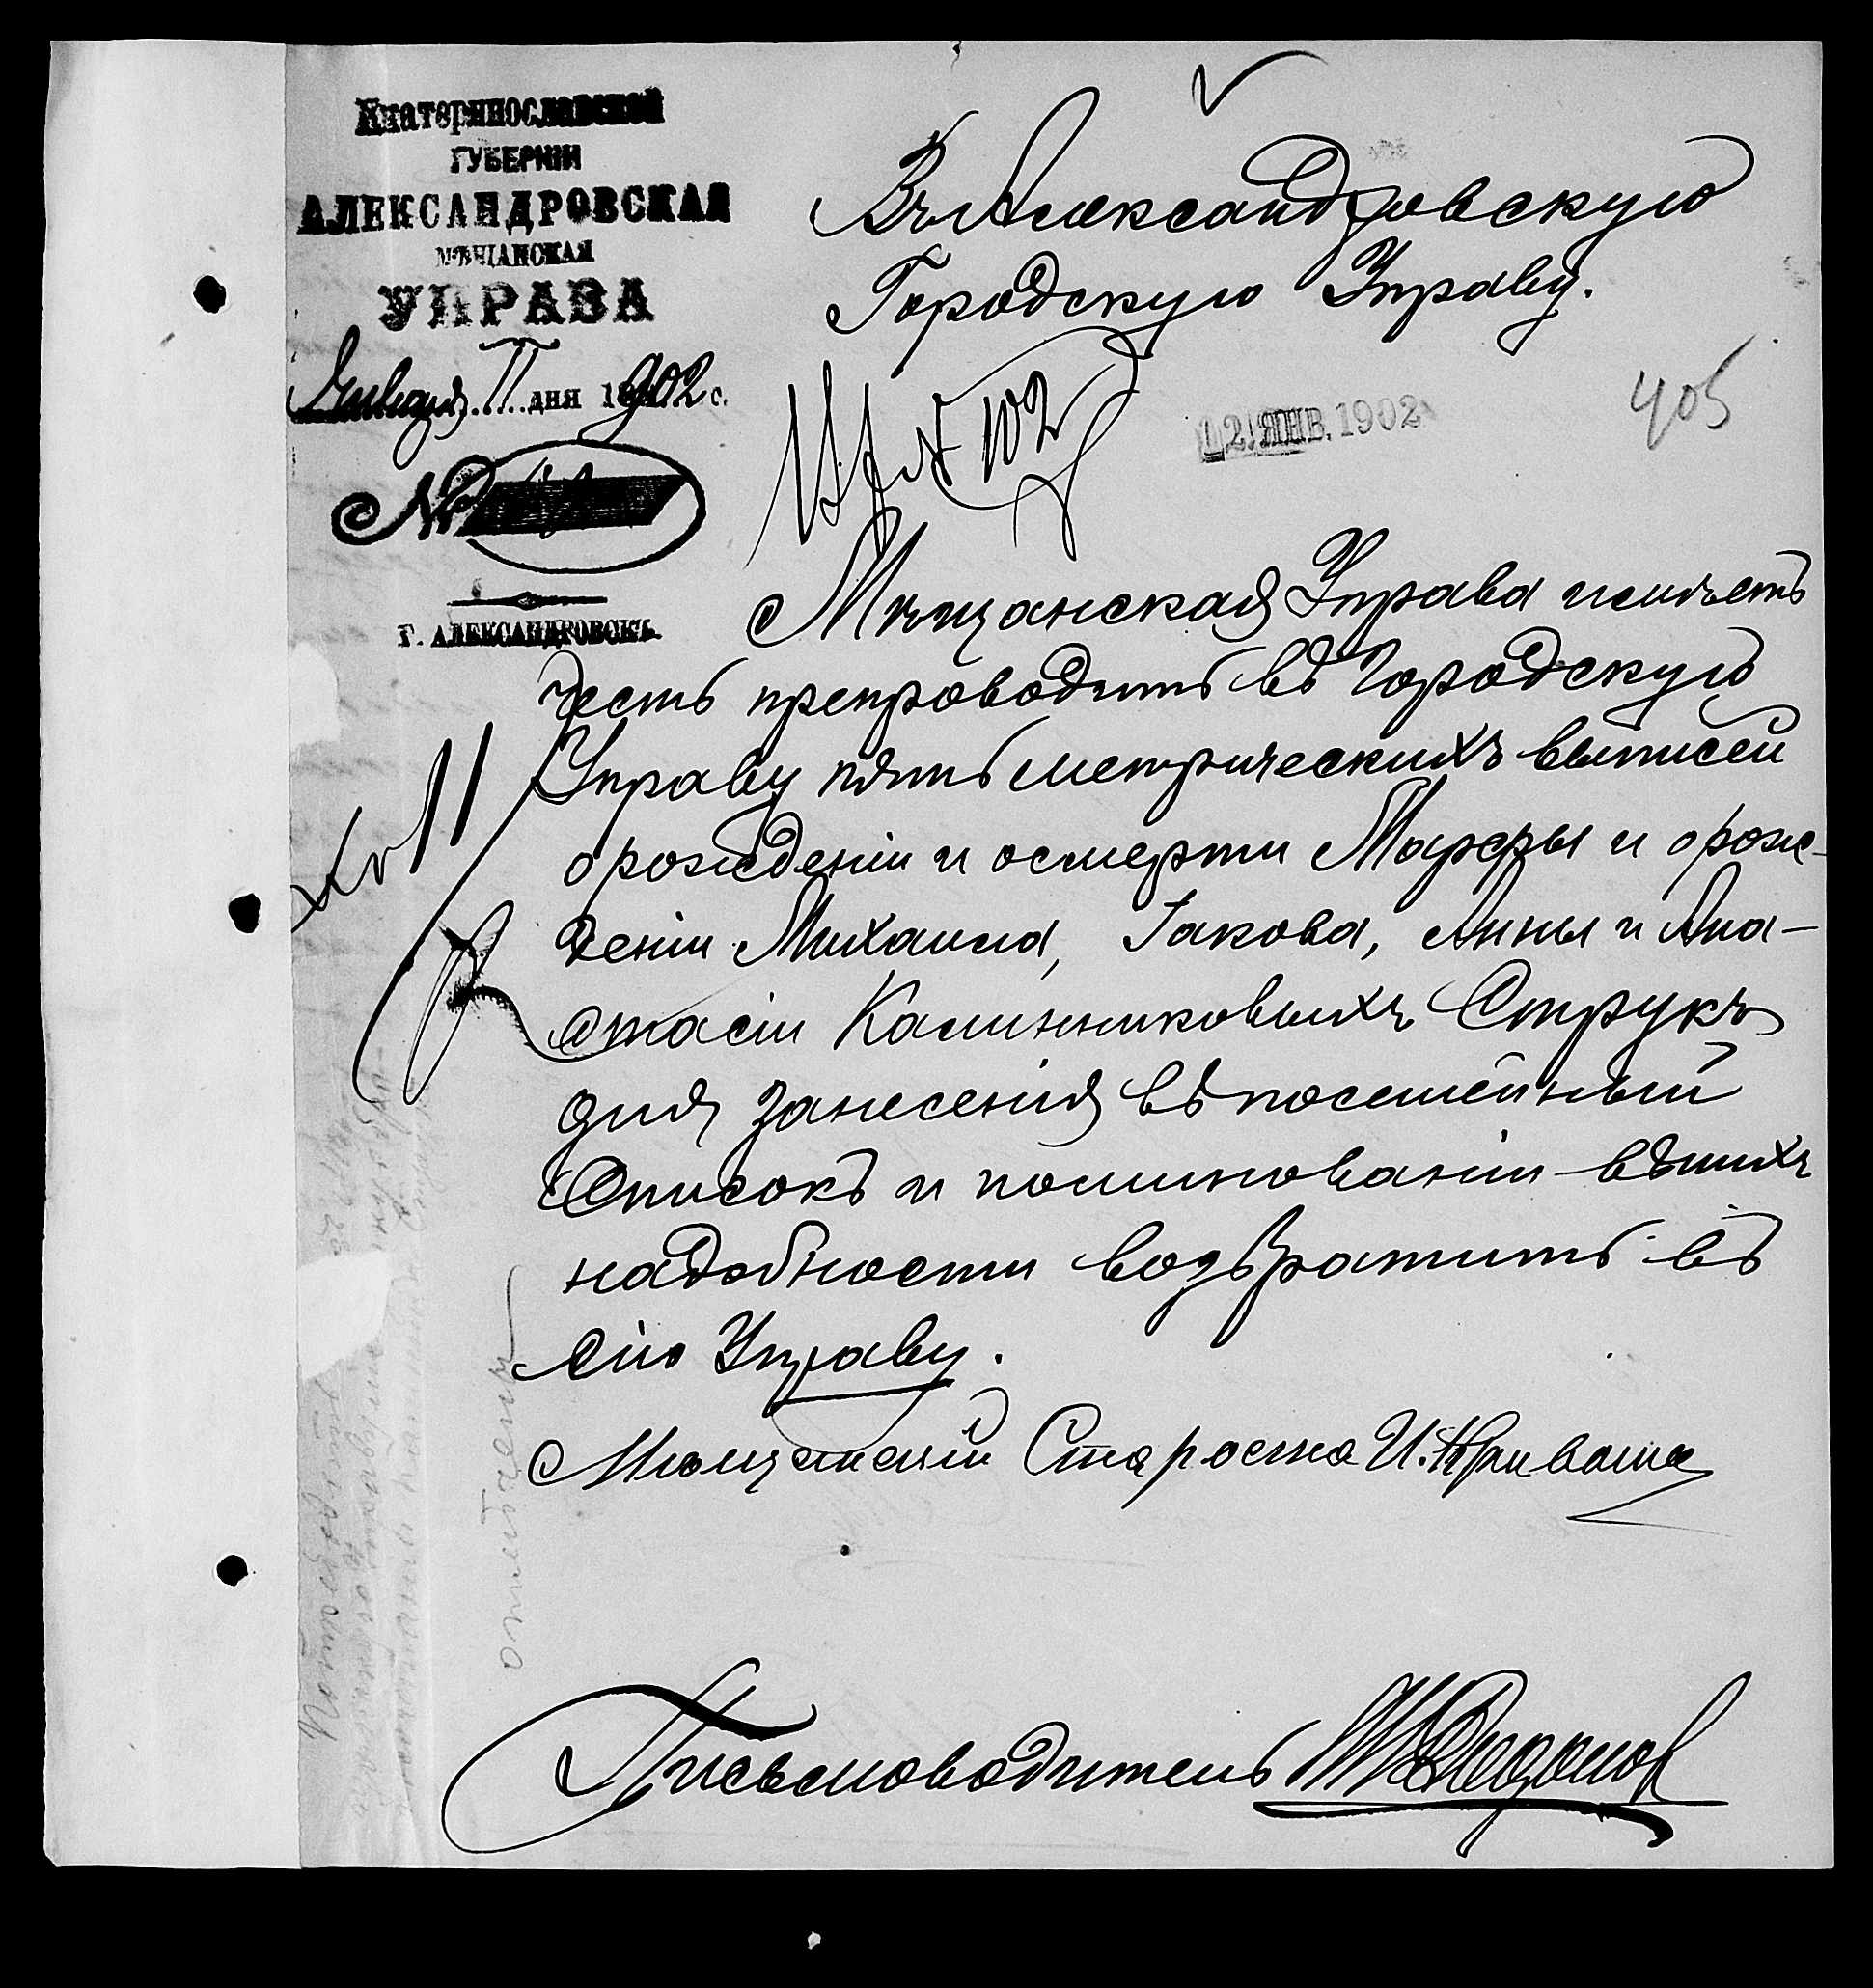 Екатеринославской
ГУБЕРНІИ
АЛЕКСАНДРОВСКАЯ
МѢЩАНСКАЯ
УПРАВА
Января 11 дня 1902 г.
№
г. АЛЕКСАНДРОВСКЪ.
Въ Александровскую
Городскую Управу.
№ 102
12 ЯНВ. 1902
405
Мѣщанская Управа имѣетъ
честь препроводить въ Городскую
Управу пять метрическихъ выписей
о рожденіи и о смерти Марфы и о рож-
деніи Михаила, Іакова, Анны и Ана-
стасіи Калинниковыхъ Струкъ
для занесенія въ посемейный
Списокъ и по минованіи въ нихъ
надобности возвратить въ
сію Управу.
Мѣщанскій Староста И. Криваша
отмѣчены
Письмоводитель